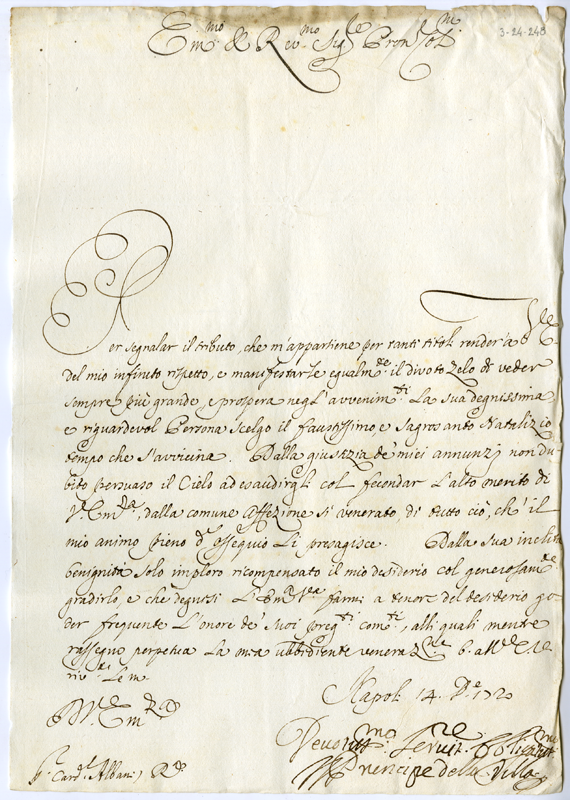 3-24-248
Em.mo & Rev.mo Sig.re Pron Col.mo
Per segnalar il tributo, che m'appartiene per tanti titoli render'a V.E.
del mio infinito rispetto, e manifestarle egualm.te il divoto Zelo di veder
sempre più grande, e prospera negl'avvenim.ti La sua degnissima
e riguardevol Persona scelgo il faustissimo, e Sagrosanto Natalizio
tempo che s'avvicina. Dalla giustizia de' miei annunzj non du-
bito persuaso il Cielo ad esaudirgli col fecondar L'alto merito di
V.Em.za, dalla comune Affezione si venerato, di tutto ciò, ch'il
mio animo pieno d'Ossequio Li presagisce. Dalla Sua inclita
benignità solo imploro ricompensato il mio desiderio col generosam.te
gradirlo, e che degnisi L'Em.za V.ra farmi a tenore del desiderio go-
der frequente L'onore de' Suoi preg.ti com.ti, alli quali mentre
rassegno perpetua La mia ubbidiente veneraz.ne b. a V.E.
riv.te Le m.
Napoli 14 D.e 1720
D. V. Em.za
Devotiss.mo Servit.re Oblig.mo
Il Principe della Villa
S.r Card.l Albani R.